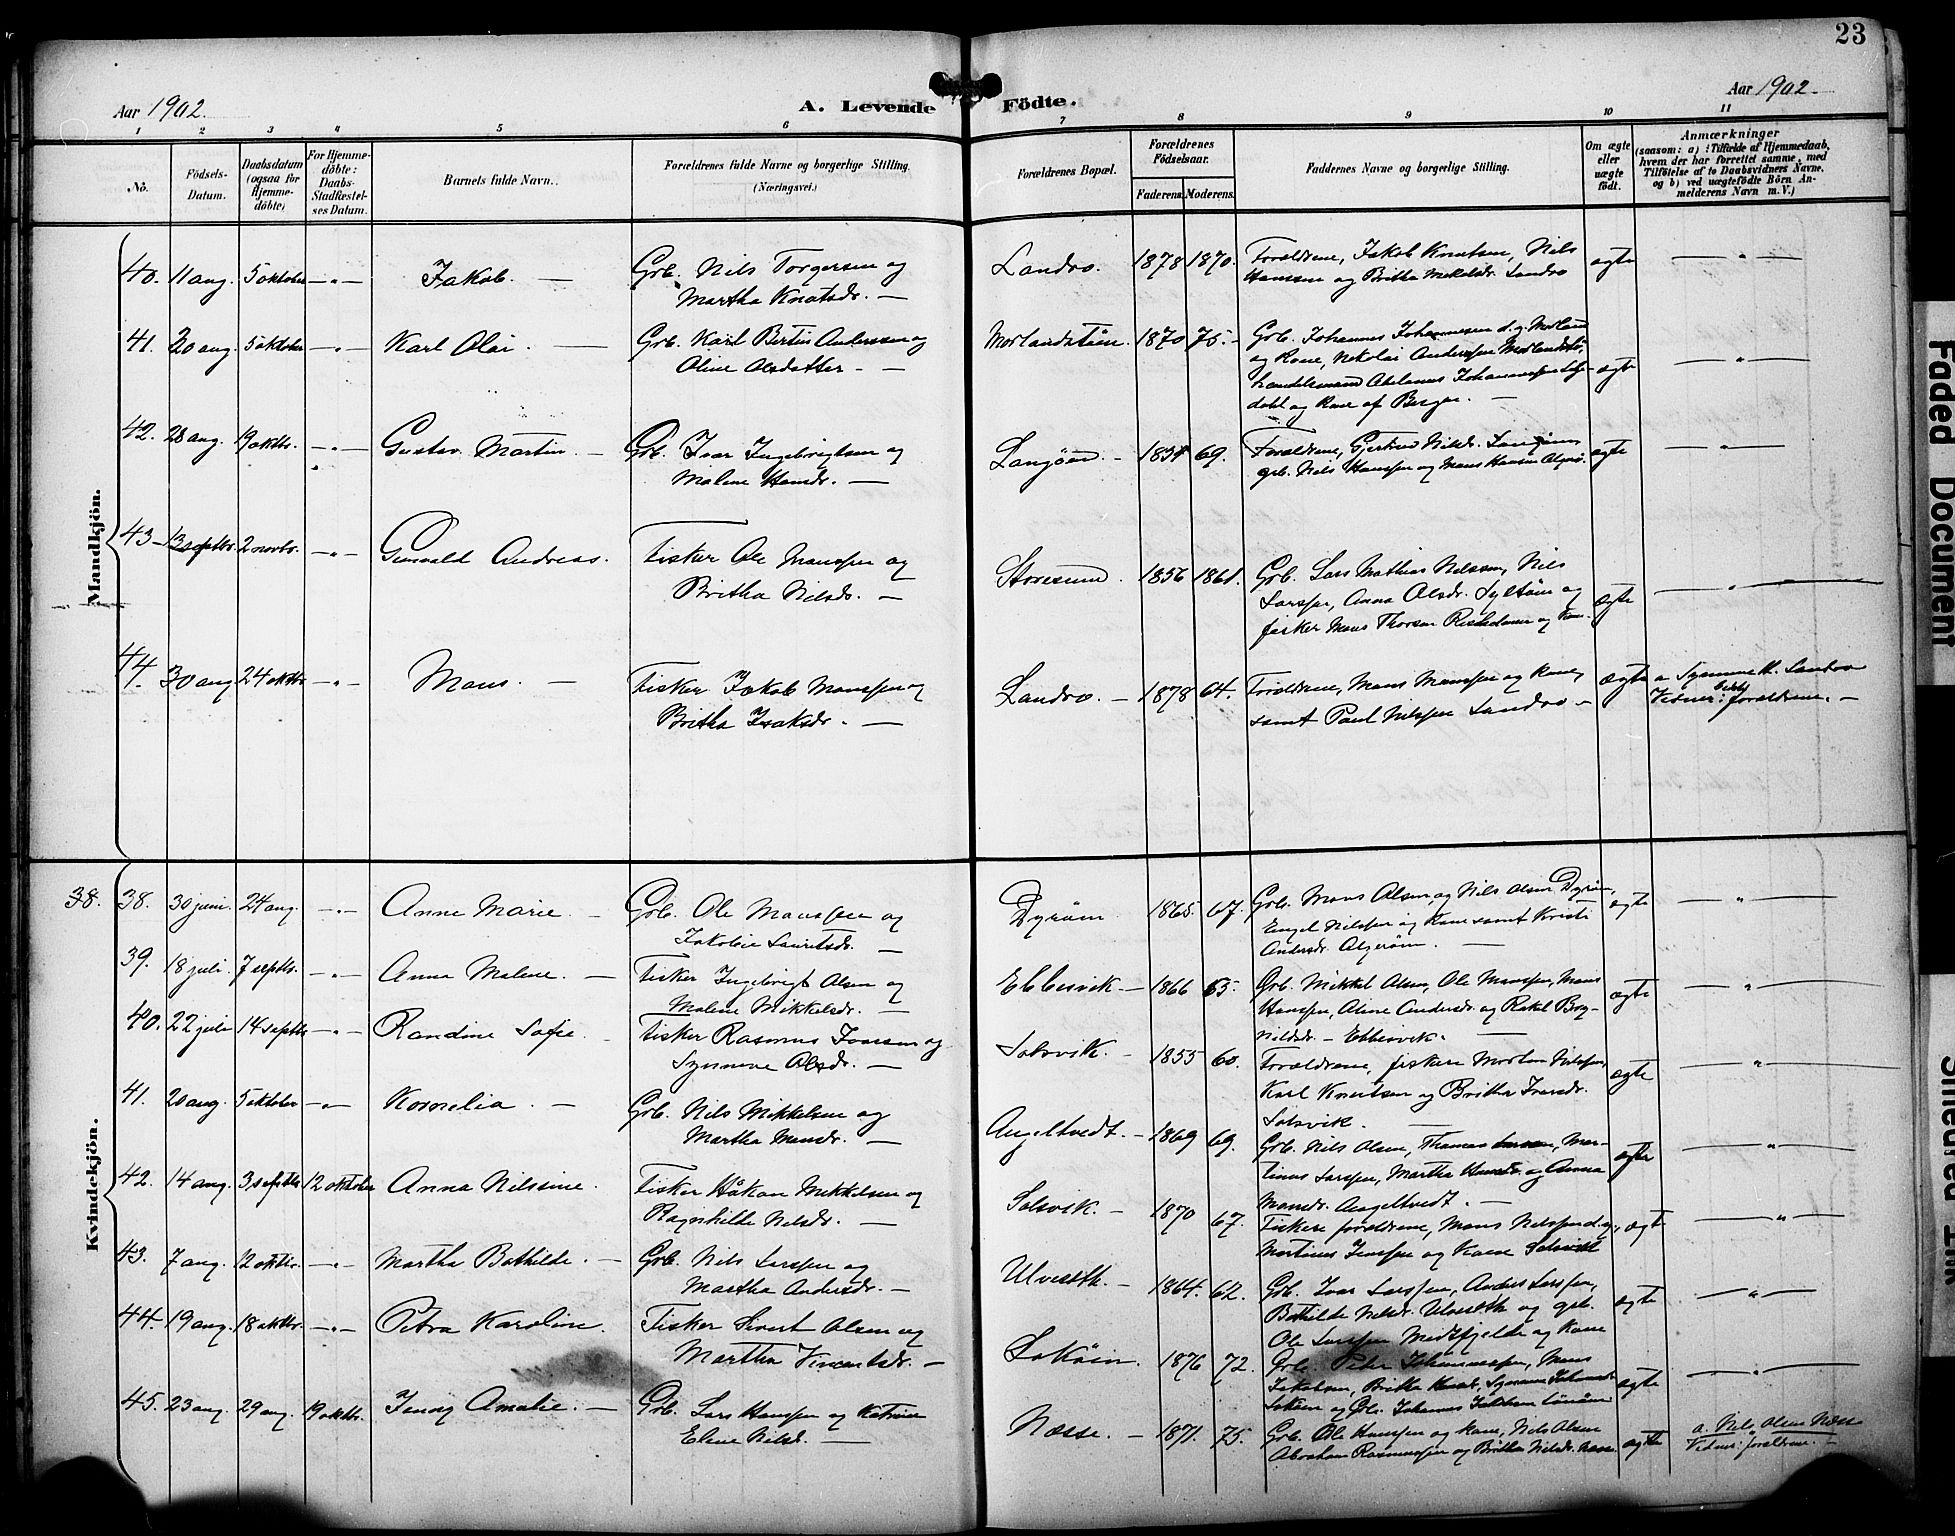 23
Aar 1902.
A. Levende Födte.
Aar 1902.
1 2 3 4 5 6 7 8 9 10 11
No.
Födsels-Datum.
Daabsdatum (ogsaa for Hjemme-döbte)
For Hjemme-döbte: Daabs-Stadfæstel-ses Datum.
Barnets fulde Navn.
Forældrenes fulde Navne og borgerlige Stilling.
(Næringsvei.)
Forældrenes Bopæl.
Forældrenes Födselsaar.
Faderens. Moderens.
Faddernes Navne og borgerlige Stilling.
Om ægte eller uægte födt.
Anmærkninger
(saasom: a) i Tilfælde af Hjemmedaab,
hvem der har forrettet samme, med
Tilföielse af to Daabsvidners Navne,
og b) ved uægtefödte Börn An-
melderens Navn m. V.)
Mandkjön.
40. 11 aug. 5 oktober —"— Jakob. — Grb. Nils Torgersen og
Martha Knutsdr. —
Landro. 1878 1870. Forældrene, Jakob Knutsen, Nils
Hanssen og Britha Mikelsdr. Landro
ægte —"—
41. 20 aug. 5 oktober —"— Karl Olai. — Grb. Karl Bertin Anderssen og
Oline Olsdatter — —
Morlandstöen. 1870 75. Grb. Johannes Johannesen d.y. Morland
og Kone, Nikolai Anderssen Morlandstö,
handelsmand Johannessen
dahl og Kone af Bergen. —
ægte —"—
42. 28 aug. 19 oktbr. —"— Gustav Martin. — Grb. Ivar Ingebrigtsen og
Malene Hansdr. —
Langöen. — 69. Forældrene, Gjertrud Nilsdr. Langöen
grb. Nils Hanssen og Mons Hansen Algrö.
ægte —"—
43 — 13 septbr. 2 novbr. —"— Gunvald Andreas. Fisker Ole Monssen og
Britha Nilsdr. —
Storesund. 1856 1861. Grb. Lars Mathias Nilssen, Nils
Larssen, Anna Olsdr. Syltöen og
fisker Mons Thorsen og Kone.
ægte —"—
44. 30 aug. 24 oktbr. —"— Mons. — Fisker Jakob Monssen og
Britha Isaksdr. —
Landro. — 1878 64. Forældrene, Mons Monssen og Kone,
samt Paul Nilssen Landro —
ægte a Synneve Landro
Vidner: begge forældrene. —
Kvindekjön.
38. 38. 30 juni. 24 aug. —"— Anne Marie. — Grb. Ole Monssen og
Jakobie Lauritsdr. —
Dyröen 1865. 67. Grb. Mons Olsen, og Nils Olsen Dyröen,
Engel Nilssen og Kone samt Kristi
Andersdr. Algeröen. —
ægte —"—
39. 18 juli. 7 septbr. —"— Anna Malene. — Fisker Ingebrigt Olsen og
Malene Mikkelsdr. —
Ebbesvik. — 1866 65. Grb. Mikkel Olsen, Ole Monssen, Mons
Hanssen, Aline Andersdr. og Rakel Bryn-
nildsdr. — Ebbesvik.
ægte —"—
40. 22 juli 14 septbr. —"— Randine Sofie. — Fisker Rasmus Ivarsen og
Synneve Olsdr. —
Solsvik. — 1855 60. Forældrene, fiskere Morten Nilssen,
Karl Knutsen og Britha Ivarsdr.
Solsvik. —
ægte —"—
41. 20 aug. 5 oktober —"— Kornelia. — Grb. Nils Mikkelsen og
Martha Monsdr. —
Angeltvedt. — 1869 69. Grb. Nils Olsen, Thomas Larssen, Mar-
tinus Larssen, Martha Hansdr. og Anna
Monsdr. Angeltvedt. —
ægte —"—
42. 14 aug. 3 septbr 12 oktober Anna Nilsine. Fisker Håkon Mikkelsen og
Ragnhilde Nilsdr. —
Solsvik. — 1870 67. Fiskere forældrene, Mons Nilssen d.y.,
Martinus Jenssen og Kone Solsvik
ægt —"—
43. 7 aug. 12 oktbr. —"— Martha Bothilde. — Grb. Nils Larssen og
Martha Andersdr. —
Ulveseth. — 1864. 62. Grb. Ivar Larssen, Anders Larssen,
Bothilde Nilsdr. Ulveseth og grb.
Ole Larssen Midtfjelde og Kone
ægte —"—
44. 19 aug. 18 oktbr. —"— Petra Karoline. Fisker Sivert Olsen og
Martha Vincentsdr. —
Loköen. 1876 72. Grb. Peter Johannessen, Mons
Jakobsen, Britha Synneve
Loköen og Grb. Johannes
ægte —"—
45. 23 aug. 29 aug. 19 oktbr. Jenny Amalie. — Grb. Lars Hanssen og Katrine
Elene Nilsd. —
Næsse. — 1871. 75. Grb. Ole Hanssen og Kone, Nils Olsen
Abraham Rasmussen og Britha Nilsdr. Næsse.
ægte a. Nils Olsen Næsse
Vidner: forældrene. —
Faded Document
Smeared Ink